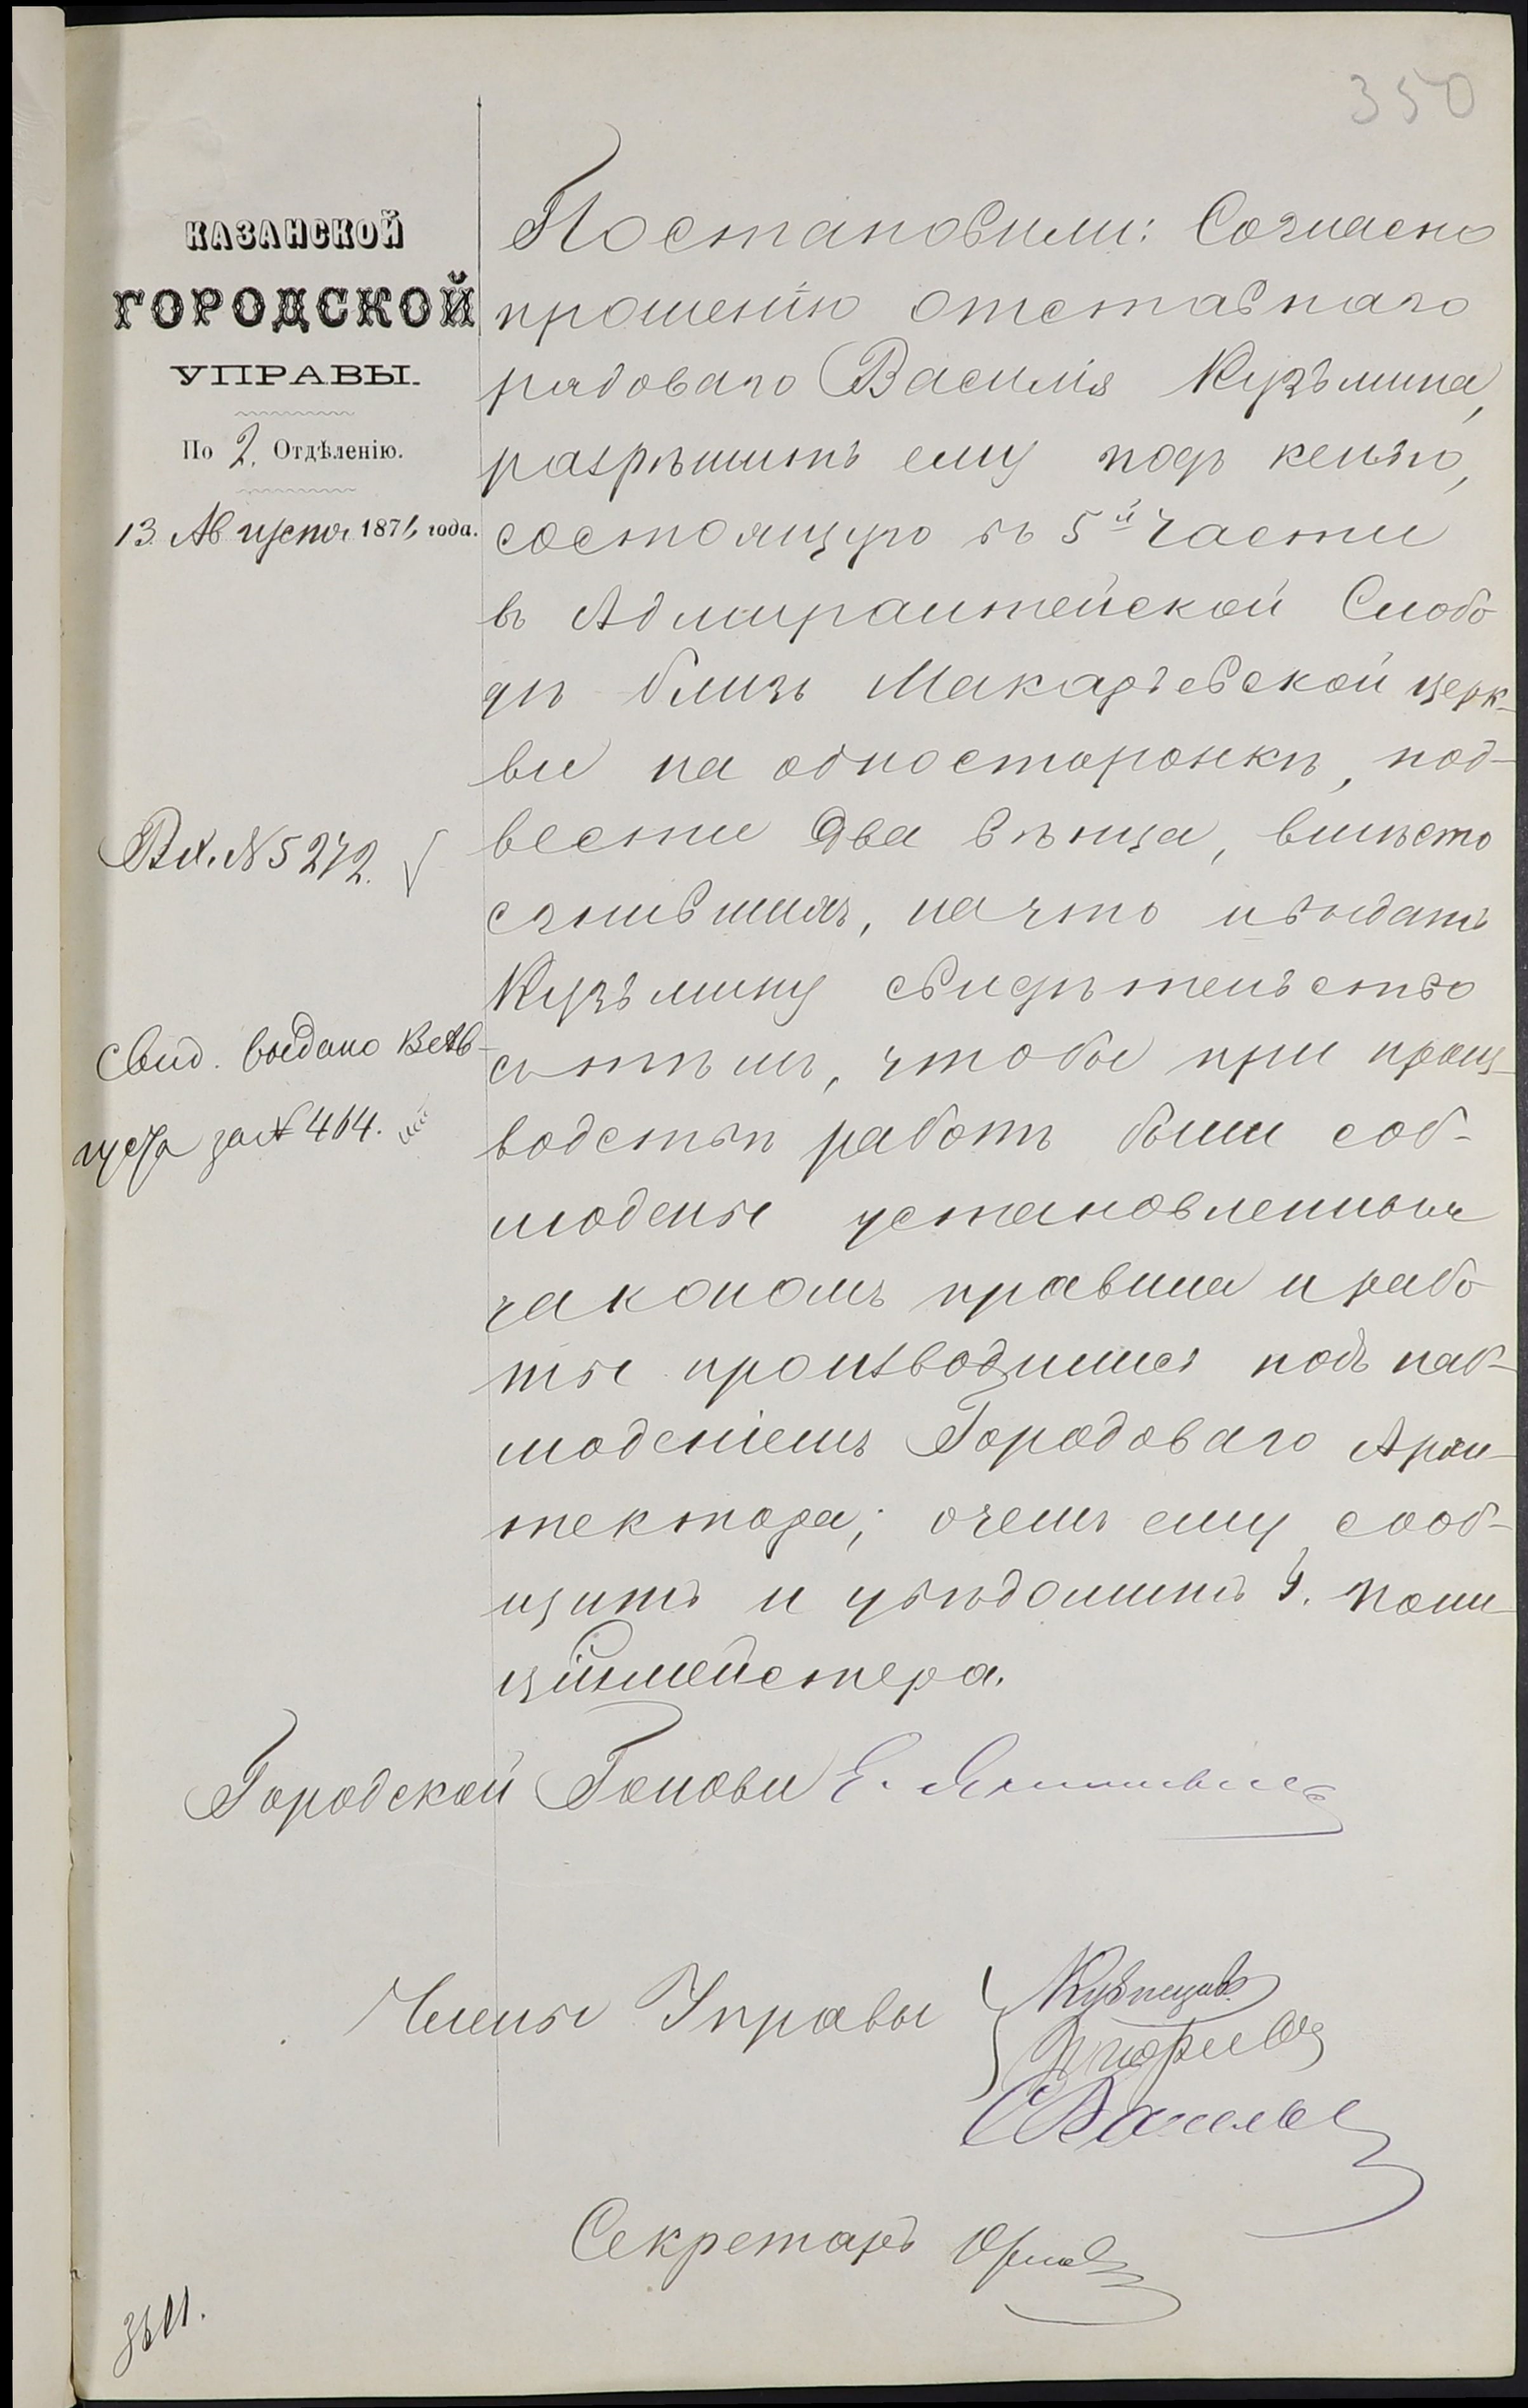 350
КАЗАНСКОЙ
ГОРОДСКОЙ
УПРАВЫ.
По 2. Отдѣленію.
13 Августа 1871 года.
Вх. № 5272.
Свид. выдано В. Ав-
густа за № 464.
Постановили: Согласно
прошенію отставнаго
рядоваго Василія Кузьмина,
разрѣшить ему подъ келью,
состоящую въ 5й части
въ Адмиралтейской Слобо
дѣ близь Макарьевской церк-
ви на односторонкѣ, под-
вести два вѣнца, вмѣсто
сгнившихъ, на что и выдать
Кузьмину свидѣтельство
съ тѣмъ, чтобы при произ-
водствѣ работъ были соб-
людены установленныя
закономъ правила и рабо
ты производились подъ наб-
люденіемъ Городоваго Архи-
тектора; о чемъ ему сооб-
щить и увѣдомить Г. Поли-
ціймейстера.
Городской Голова Е.
Члены Управы
Кузнецовъ
Секретарь Орловъ